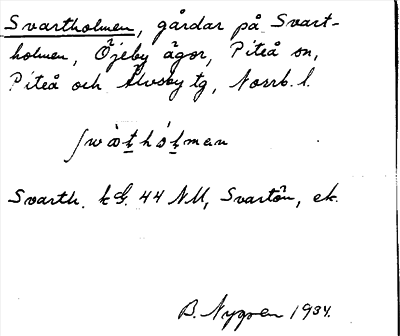 Svartholmen, gårdar på Svart-
holmen, Öjeby ägor, Piteå sn,
Piteå och Älvsby tg, Norrb. l.
ʃwàt̠hót̠men
Svarth. kG. 44 NU, Svartön, ek.
B. Nygren 1934.